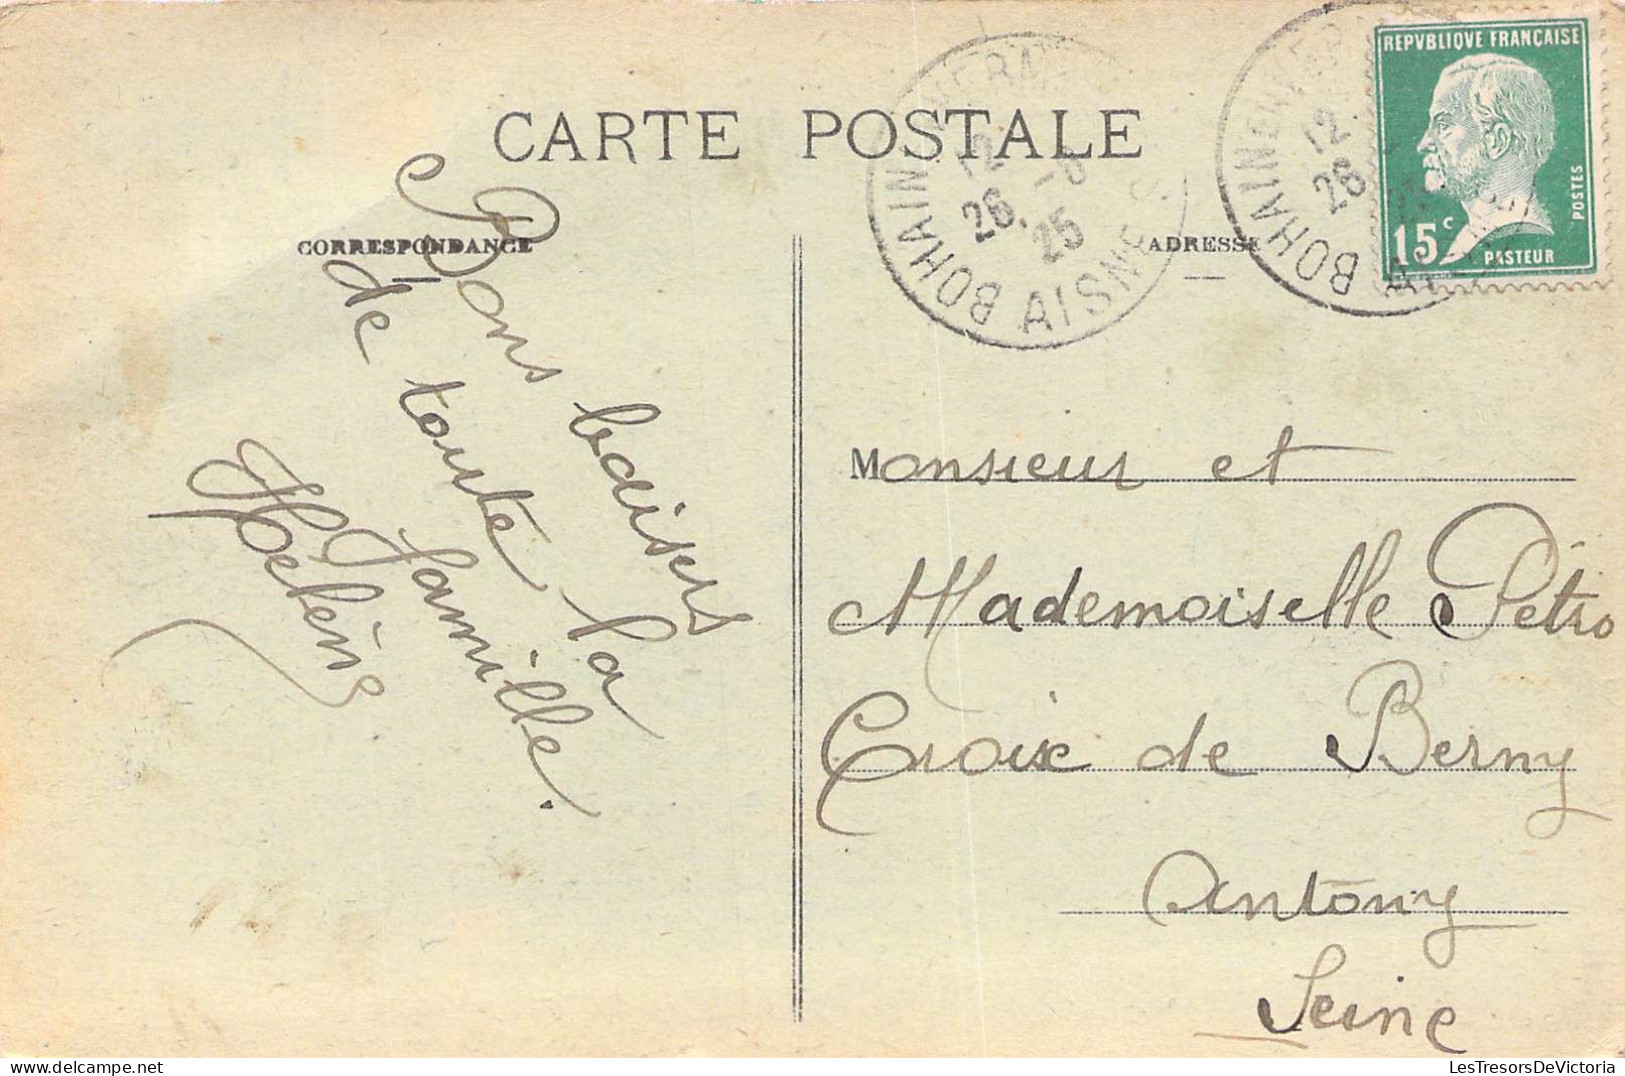 CARTE POSTALE
CORRESPONDANCE
ADRESSE
Bons baisers
de toute la
famille.
Hélène
BOHAIN
AISNE
12
26. 25
BOHAIN
12
26
REPVBLIQVE FRANÇAISE
POSTES
15c
PASTEUR
Monsieur et
Mademoiselle Pétro
Croix de Berny
Antony
Seine
LesTresorsDeVictoria